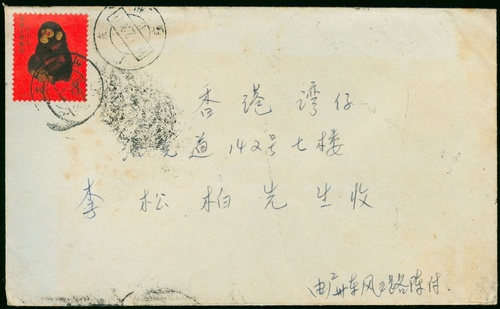 香港湾仔
道142号七楼
李松柏先生收
由广州东风路陈付